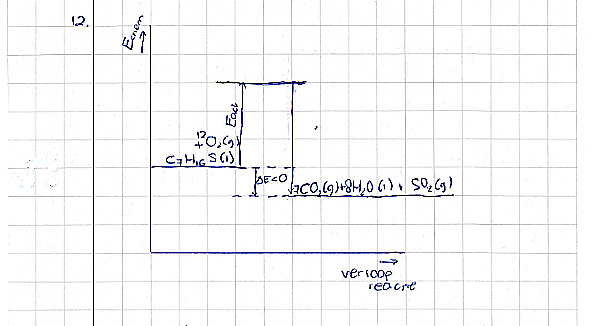 12.
Ener
Eact
12
+O₂(g)
C₇H₁₆S(l)
ΔE<0
7CO₂(g)+8H₂O(l) + SO₂(g)
verloop
reactie